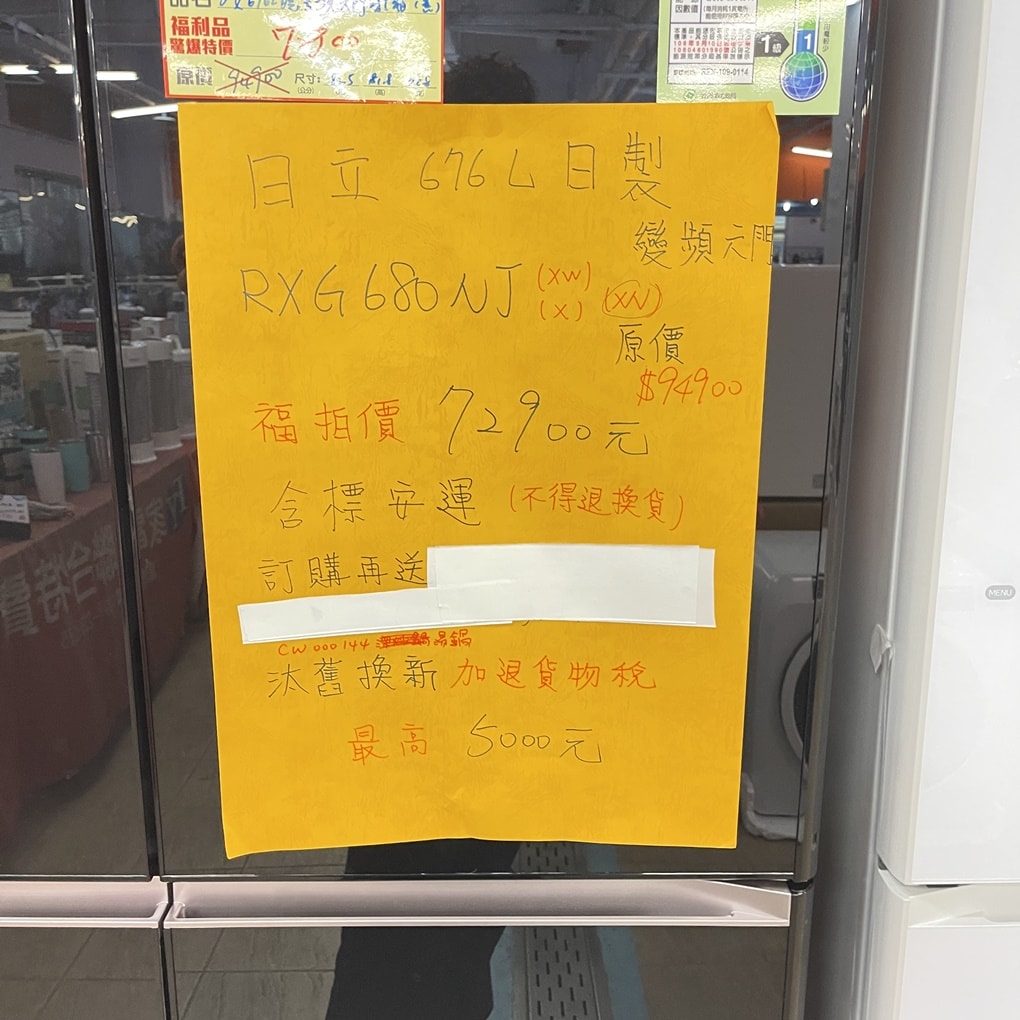 福利品
驚爆特價
原價 94900 尺寸:
(公分) (高)
因數值
1級
1
日立 676L 日製
變頻六門
RXG680NJ (XW)
(X) (XN)
原價
$94900
福拍價 72900元
含標安運 (不得退換貨)
訂購再送
CW000144 湯鍋
汰舊換新 加退貨物稅
最高 5000元
MENU